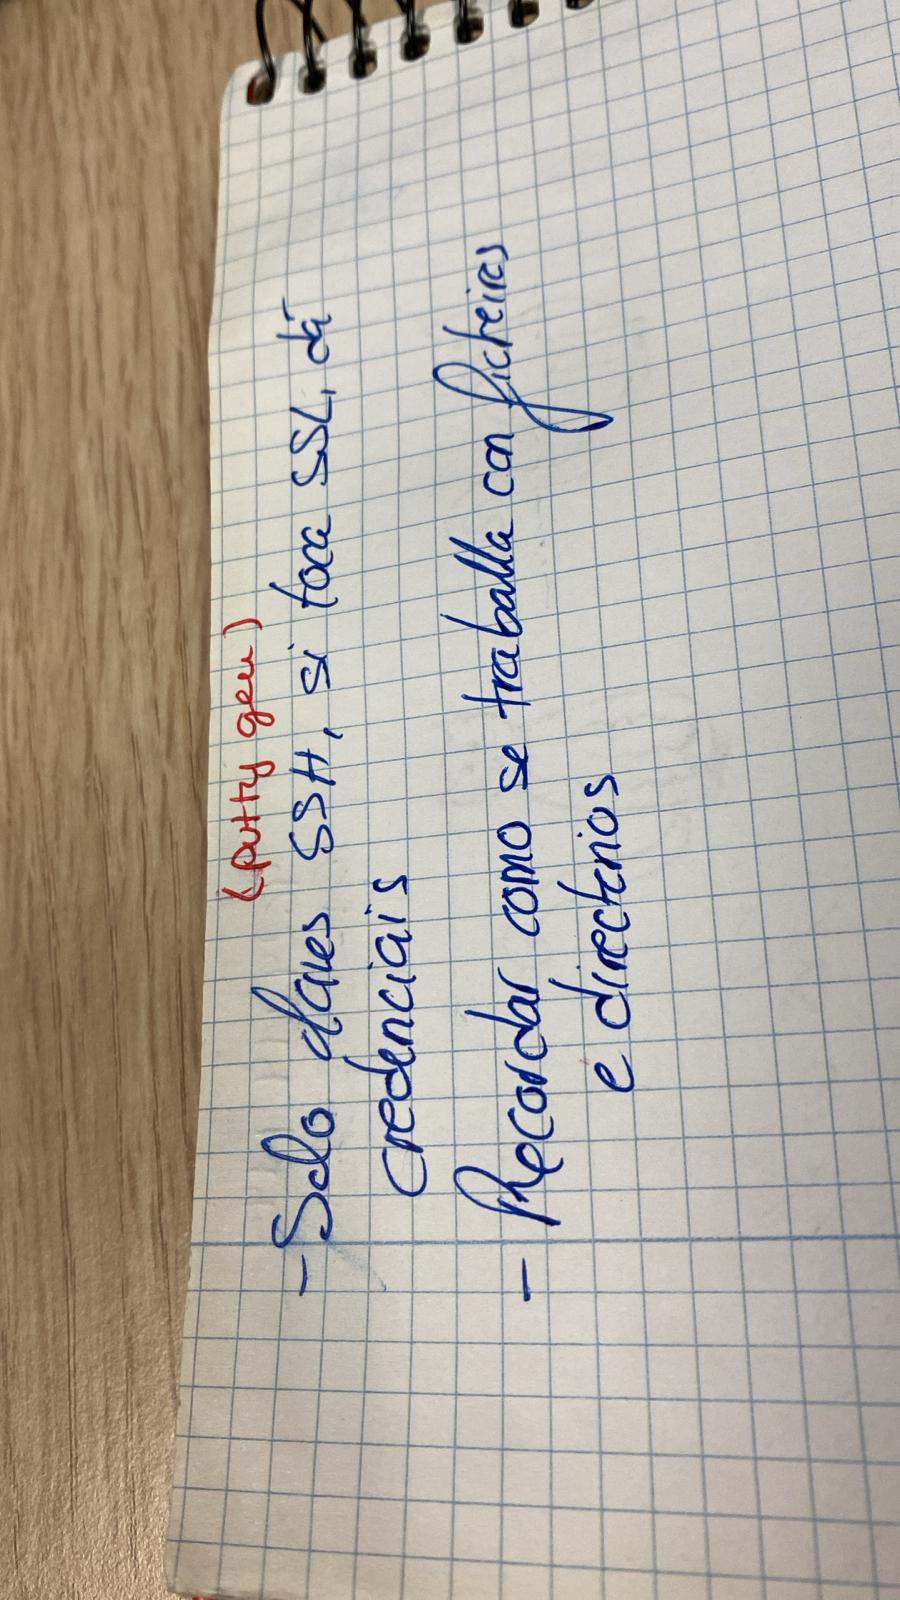 (putty gen)
- Solo claves SSH, si toca SSL, dá
credenciais
- Recordar como se traballa con ficheiros
e directorios